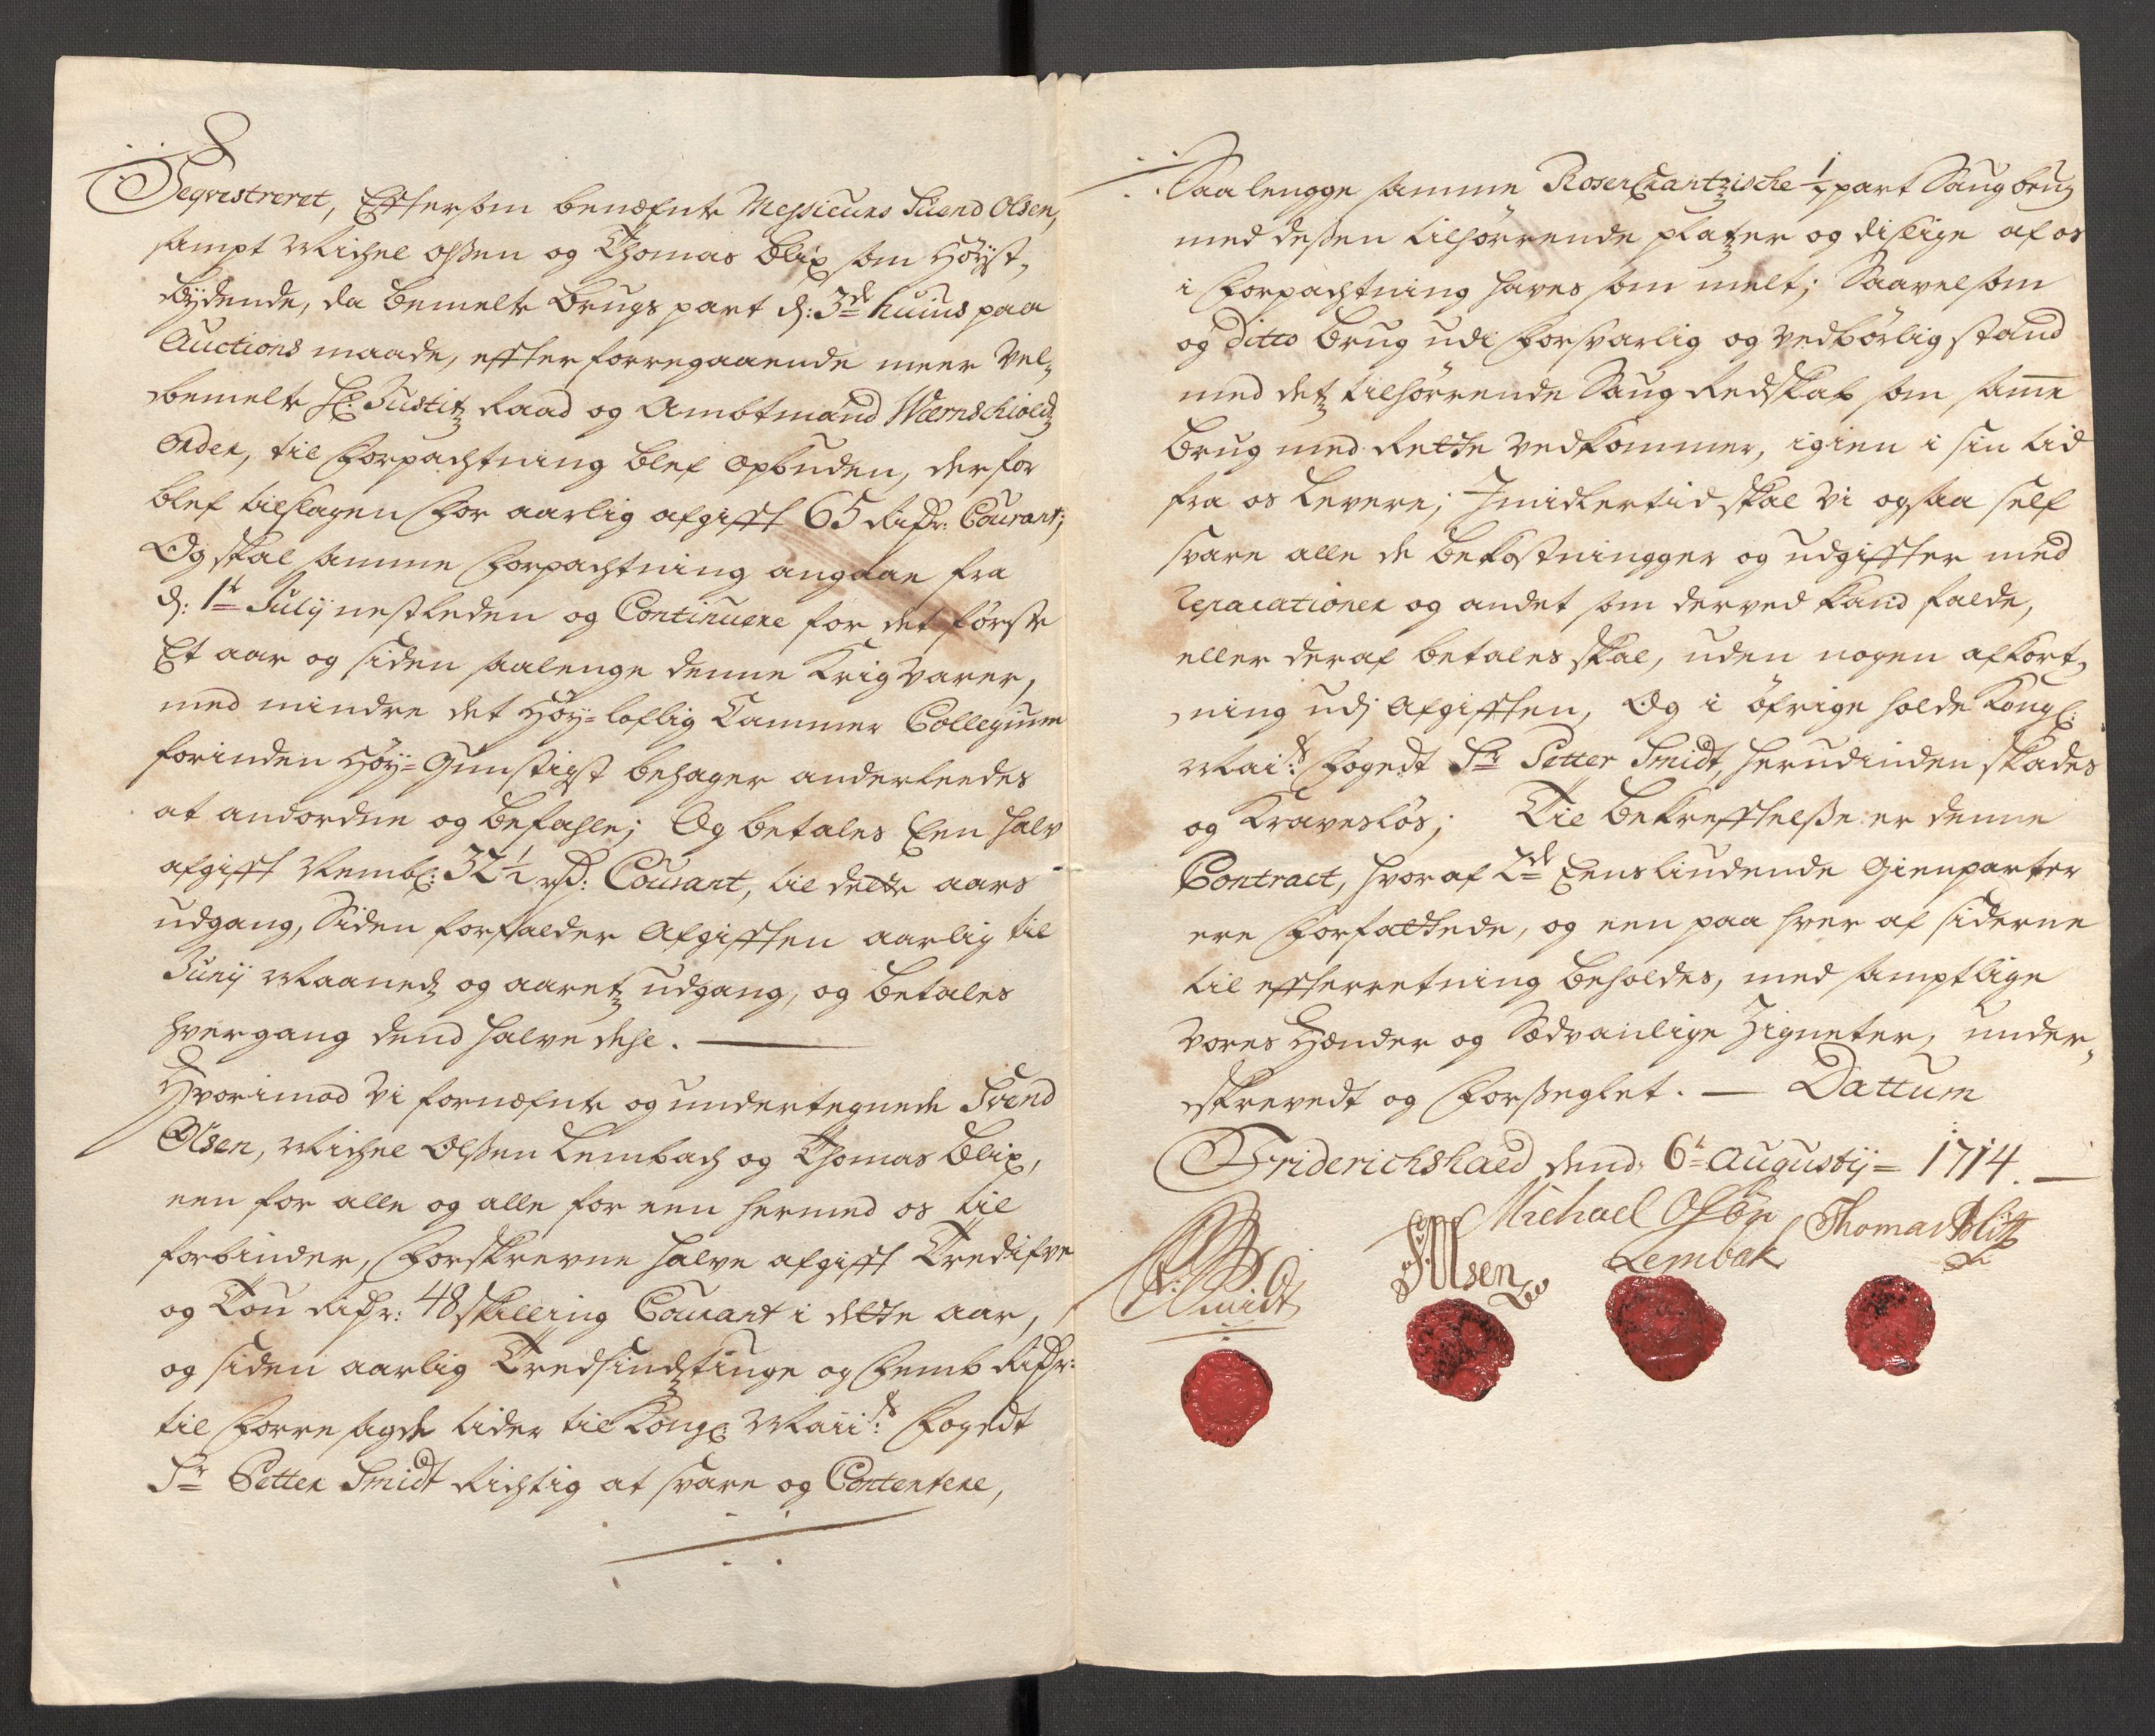 Seqvestreret, Effter som benæfnte Messieurs Suend Olsen,
sampt Michel Olssen og Thomas Blix som Høyst-
bydende, da bemelte brugs part d: 3de huius paa
Auctions maade, effter forregaaende meer Vel-
bemelte Hr: Justitz Raad og Ambtmand Wærnschioldz
Order, til Forpachtning blef opbuden, derfor
blef tilslagen For aarlig afgifft 65 Rixdr: Courant;
Og skal samme Forpachtning angaae fra
d: 1te Julij nestleden og Continuere for det første
Et aar og siden saalenge denne Krig varer,
med mindre det Høy-loflig Cammer Collegium
forinden Høy-Gunstigst behager anderleedes
at anordne og befahle; Og betales Een halv
afgifft Nembl: 32½ rd: Courant, til dette aars
udgang, Siden forfalder Afgifften aarlig til
Junij Maanedz og aaretz udgang, og betales
hvergang dend halve dehl. —
Hvorimod Vi fornæfnte og undertegnede Svend
Olsen, Michel Olssen Lembach og Thomas Blix,
een for alle og alle for een hermed os til
forbinder, Forskrevne halve afgifft Tredifve
og Tou Rixdr: 48 skilling Courant i dette aar,
og siden aarlig Tredsindztiuge og Femb Rixdr:
til Forre sagde tider til Kongl: Maiis: Fogedt
Sr Petter Smidt Richtig at svare og Contentere,
Saa lengge samme Rosenkrantzische ½ part Saug brug
med dessen tilhørrende platzer og dislige af os
i Forpachtning haves som melt; Saavelsom
og ditto brug udi Forsvarlig og vedbørlig stand
med detz tilhørrende Saug Redskab som samme
brug med Rette vedkommer, igien i sin tid
fra os levere; Imidlertid skal Vi ogsaa self
svare alle de bekostningger og udgiffter med
Reparationer og andet som derved kand falde,
eller deraf betales skal, uden nogen afkort-
ning udj Afgifften, Og i øfrige holde Kongl:
Mais: Fogedt Sr Petter Smidt, herudinden skades
og Kravesløs; Til bekrefftelsse er denne
Contract, hvoraf 2de Eensliudende Gienparter
ere Forfattede, og een paa hver af siderne
til effterretning beholdes, med samptlige
Vores Hænder og Sædvanlige Zigneter, under-
skrevedt og Forsseglet. — Dattum
Friderichshald dend 6te Augustij = 1714. —
P: Smidt
S: Olsen
Michael Olsøn
Lembak
Thomas Blix